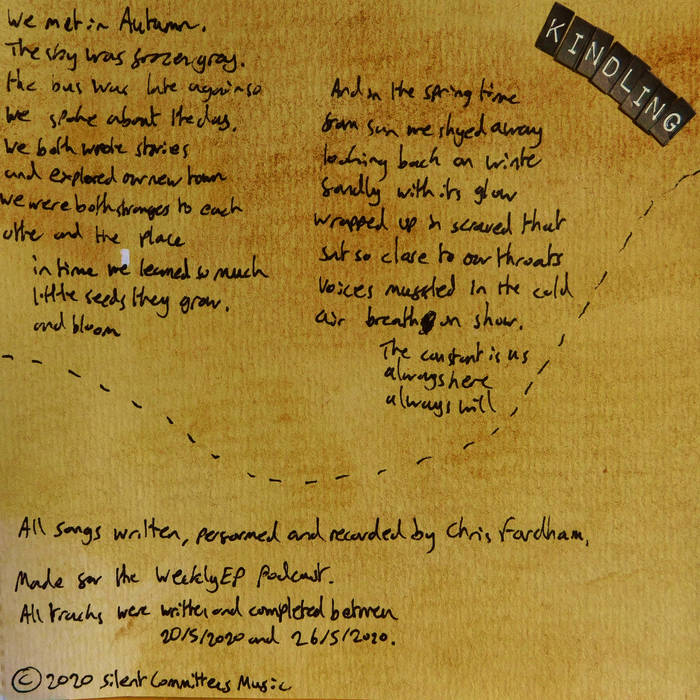 We met in Autumn.
The sky was frozen gray.
the bus was late again so
we spoke about the day.
we both wrote stories
and explored our new town
we were both strangers to each
other and the place
in time we learned so much
little seeds they grow.
and bloom
KINDLING
And in the spring time
from sun we shyed away
looking back on winter
fondly with its glow
wrapped up in scarved that
sat so close to our throats
voices muffled in the cold
air breath on show.
The constant is us
always here
always will
All songs written, performed and recorded by Chris Fordham.
Made for the Weekly EP Podcast.
All tracks were written and completed between
20/5/2020 and 26/5/2020.
© 2020 Silent Committees Music